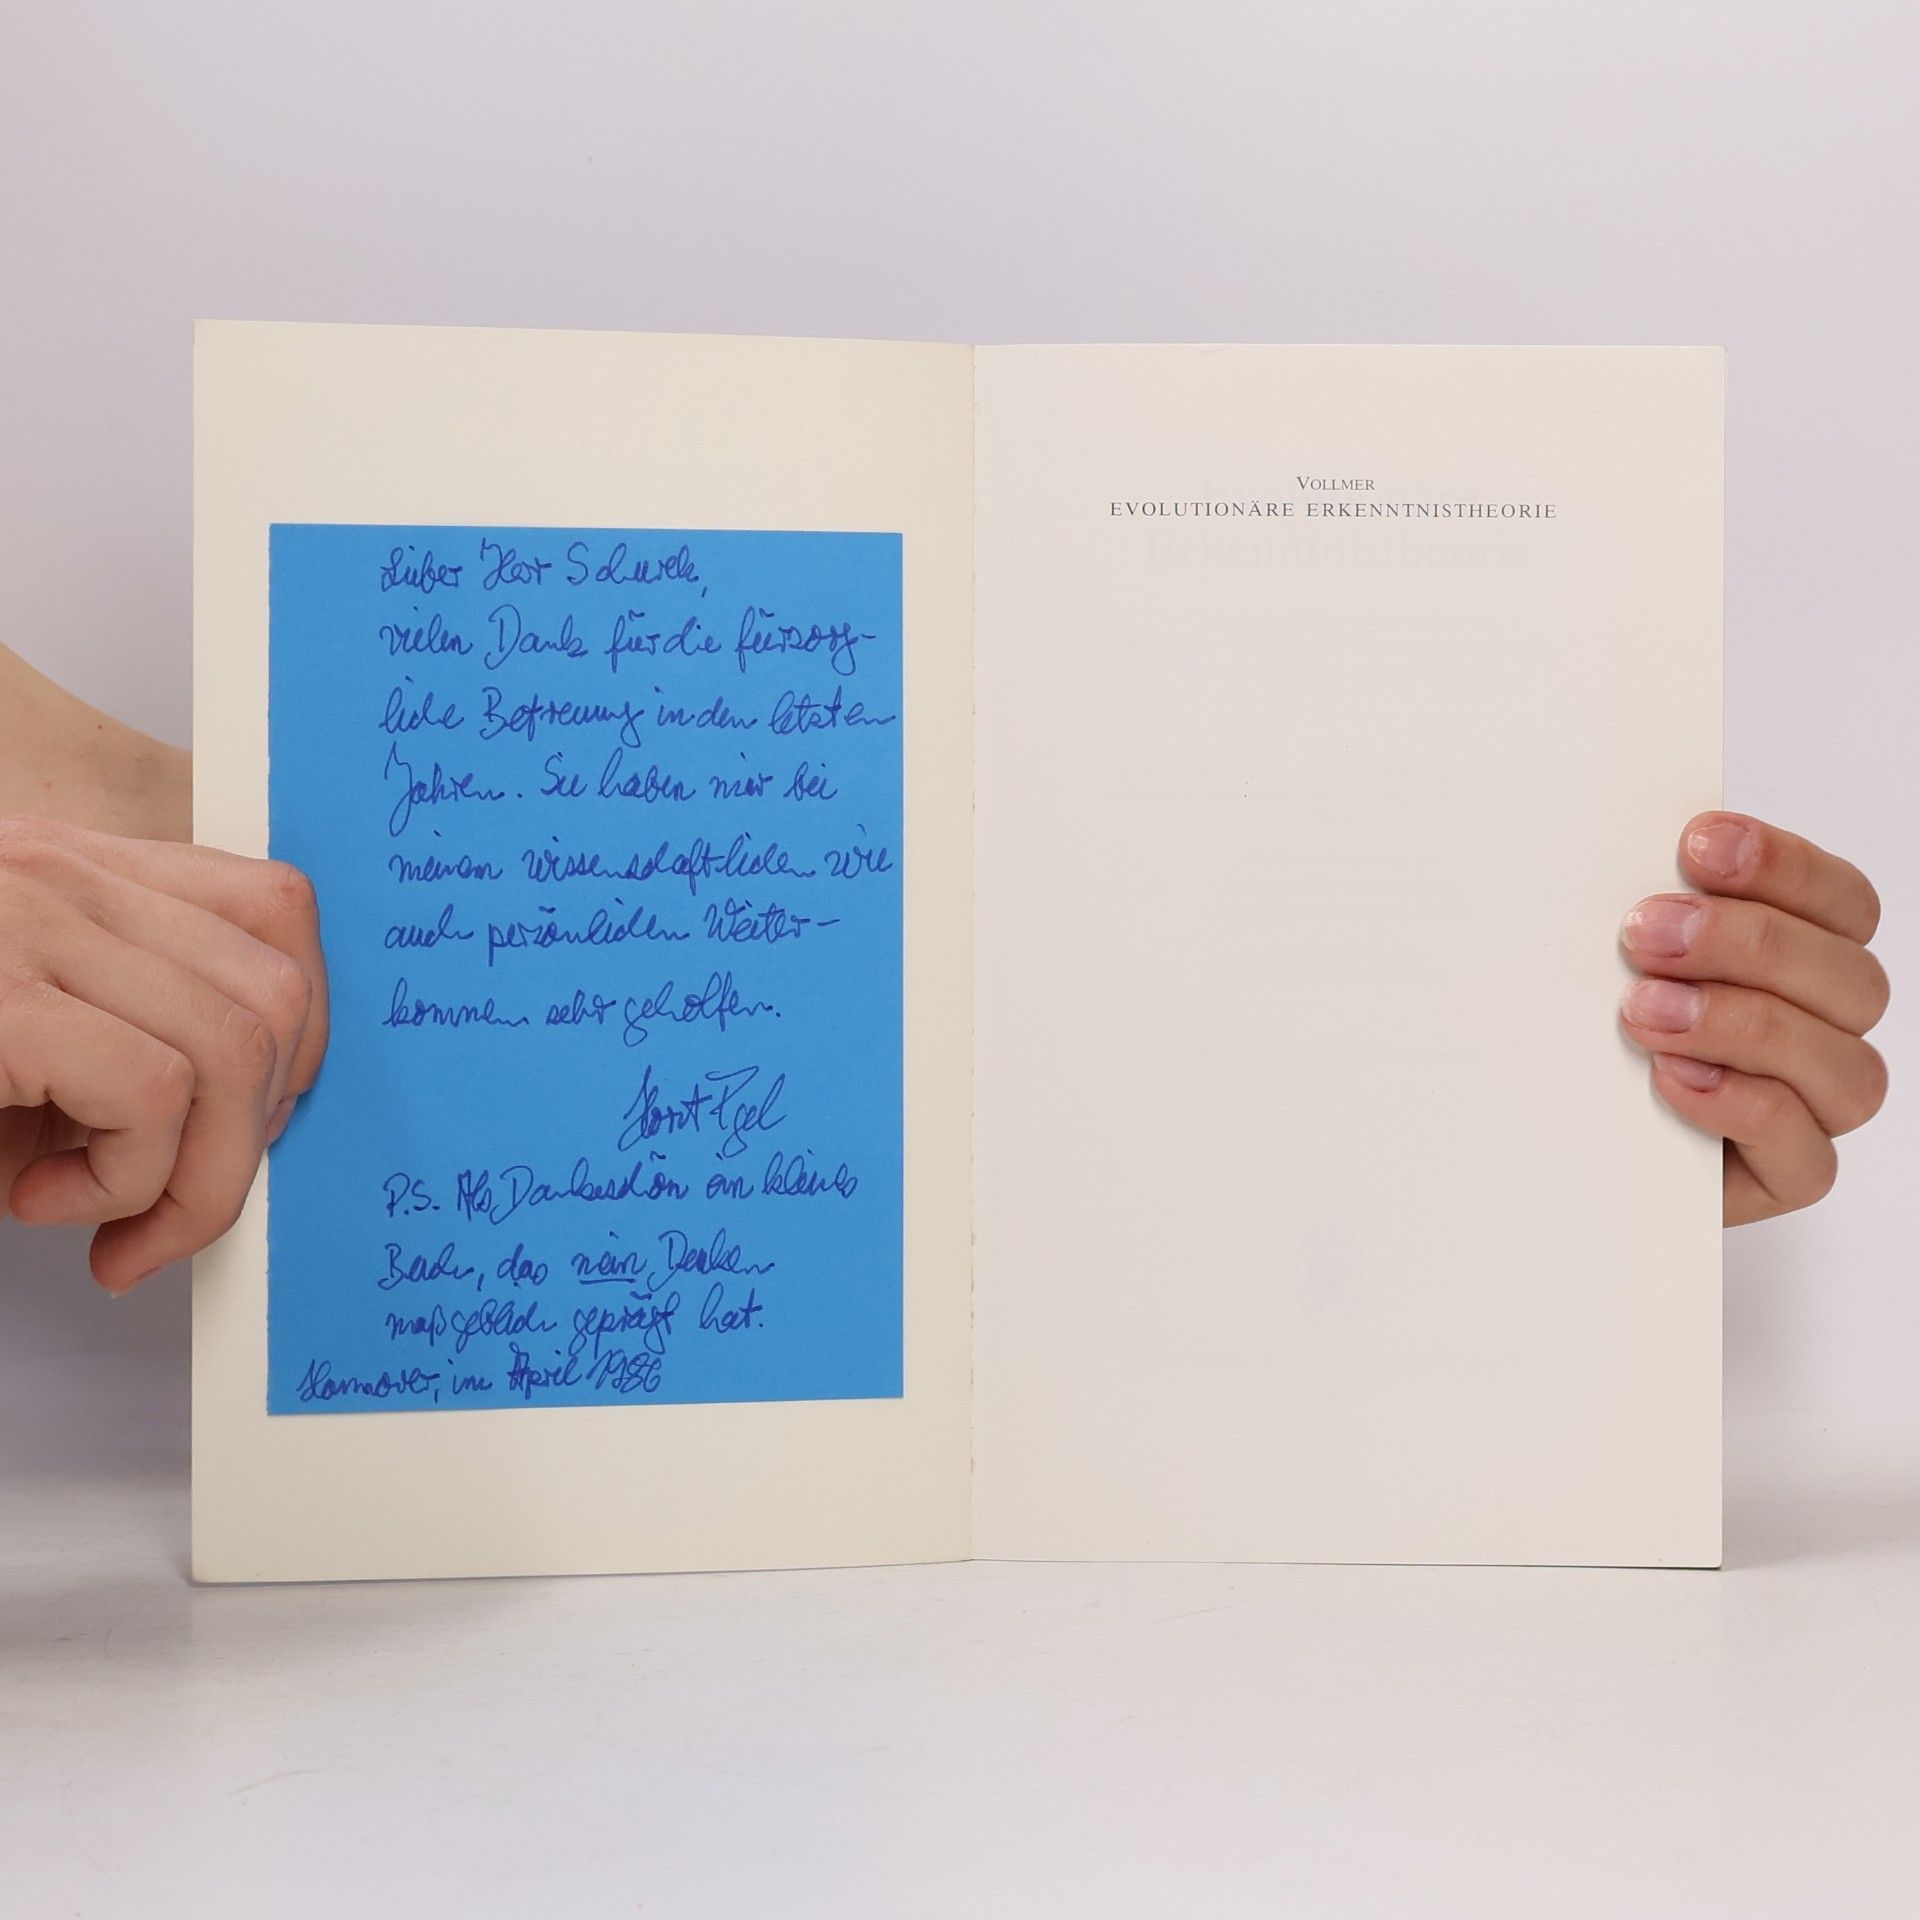 Lieber Herr Schurek,
vielen Dank für die fürsorg-
liche Betreuung in den letzten
Jahren. Sie haben mir bei
meinem wissenschaftlichen wie
auch persönlichen Weiter-
kommen sehr geholfen.
Horst
P.S. Als Dankeschön ein kleines
Buch, das mein Denken
maßgeblich geprägt hat.
Hannover, im April 1986
VOLLMER
EVOLUTIONÄRE ERKENNTNISTHEORIE